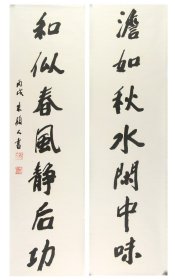 澹如秋水閒中味
和似春風靜后功
丙戌
書